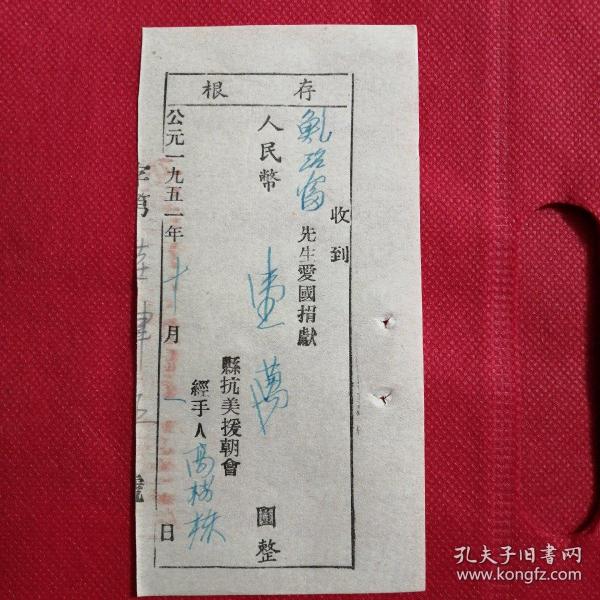 存根
收到
鮑 先生愛國捐獻
人民幣 壹萬 圓整
縣抗美援朝會
經手人 高
公元一九五一年十月 日
字第 號
孔夫子旧书网
www.kongfz.com